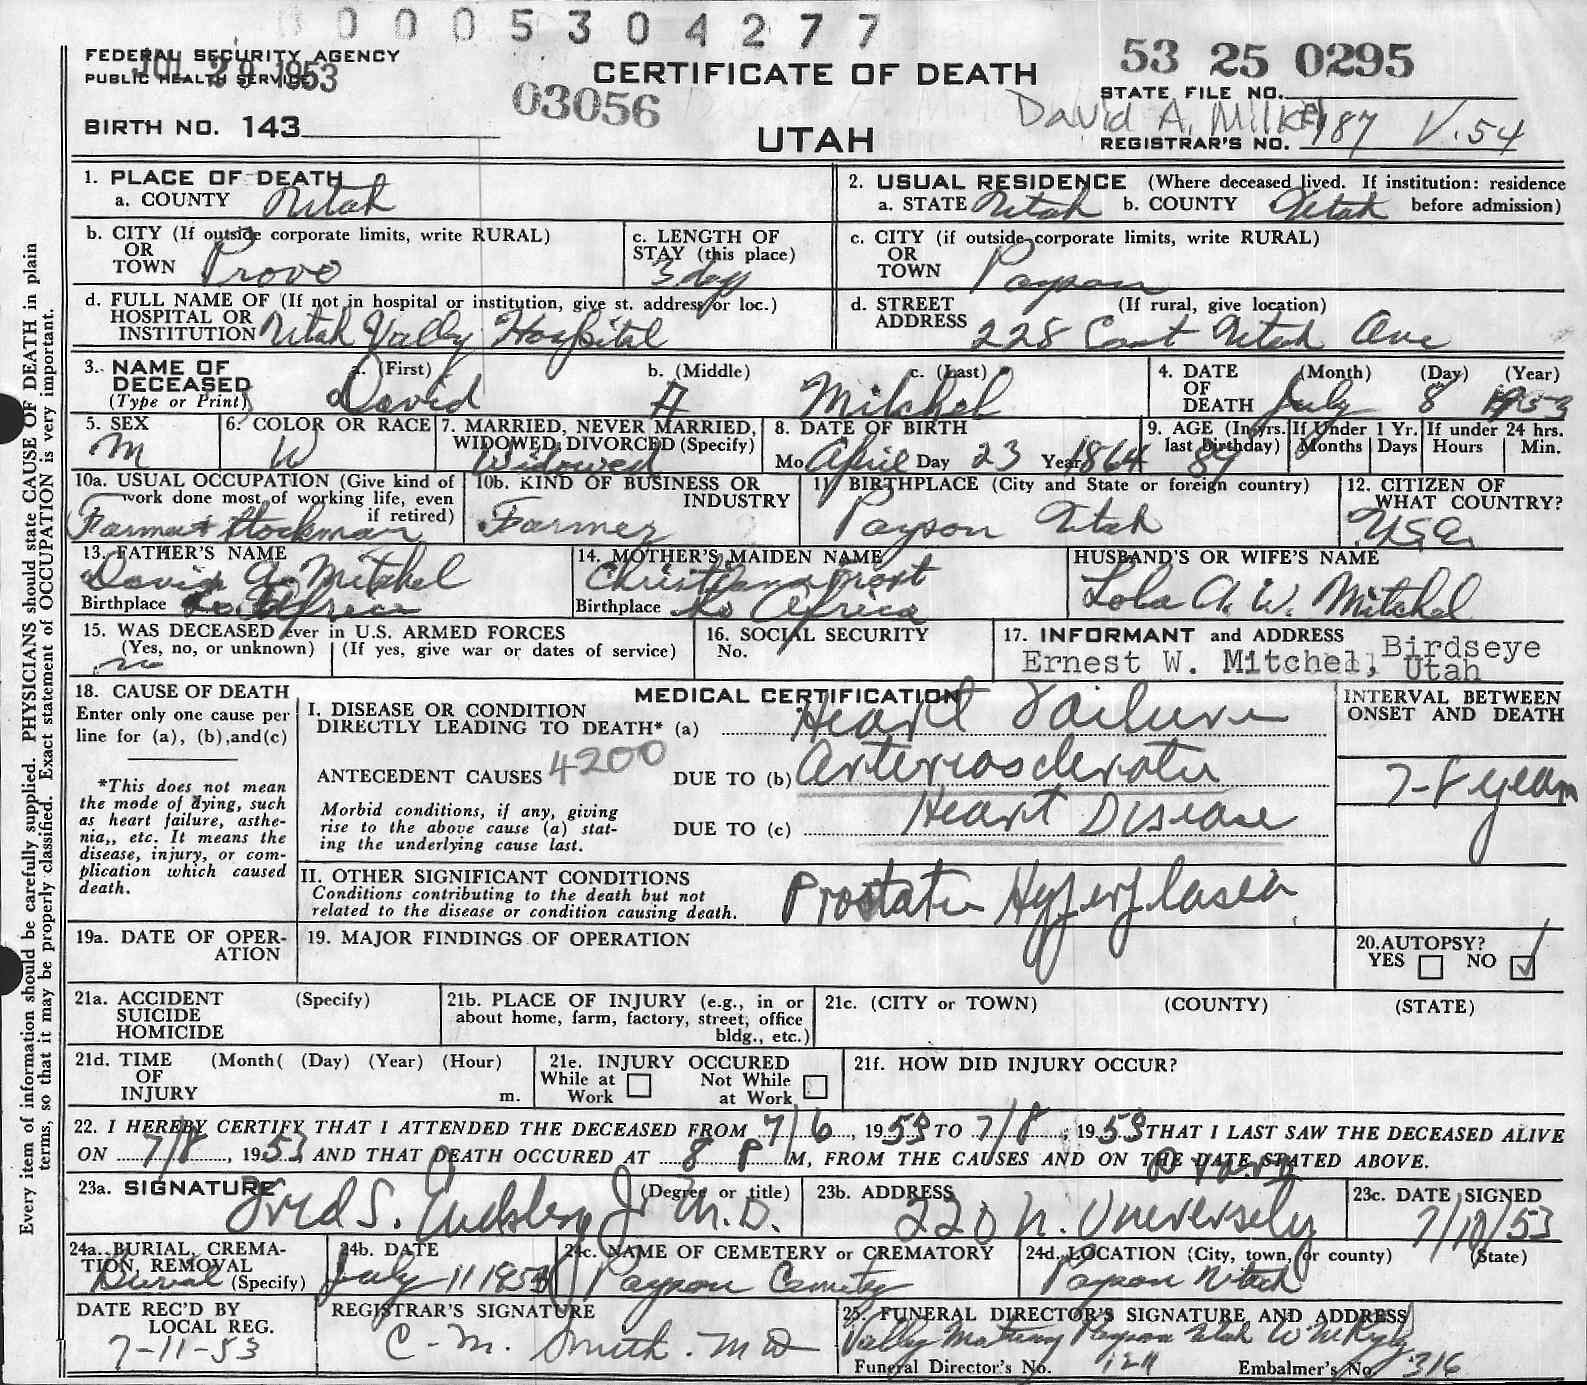 0 0 0 0 5 3 0 4 2 7 7
FEDERAL SECURITY AGENCY
PUBLIC HEALTH SERVICE
JUL 29 1953
CERTIFICATE OF DEATH
03056
53 25 0295
STATE FILE NO.
David A. Milke
BIRTH NO. 143
UTAH
REGISTRAR'S NO. 187 V.54
1. PLACE OF DEATH
a. COUNTY Utah
2. USUAL RESIDENCE (Where deceased lived. If institution: residence
a. STATE Utah b. COUNTY Utah before admission)
b. CITY (If outside corporate limits, write RURAL)
OR
TOWN Provo
c. LENGTH OF
STAY (this place)
3 days
c. CITY (if outside corporate limits, write RURAL)
OR
TOWN Payson
d. FULL NAME OF (If not in hospital or institution, give st. address or loc.)
HOSPITAL OR
INSTITUTION Utah Valley Hospital
d. STREET (If rural, give location)
ADDRESS 228 East Utah Ave
3. NAME OF
DECEASED
(Type or Print)
a. (First) b. (Middle) c. (Last)
David A Mitchel
4. DATE (Month) (Day) (Year)
OF
DEATH July 8 1953
5. SEX
M
6. COLOR OR RACE
W
7. MARRIED, NEVER MARRIED,
WIDOWED, DIVORCED (Specify)
Widowed
8. DATE OF BIRTH
Mo April Day 23 Year 1864
9. AGE (In yrs.
last birthday)
89
If Under 1 Yr.
Months Days
If under 24 hrs.
Hours Min.
10a. USUAL OCCUPATION (Give kind of
work done most of working life, even
if retired)
Farmer & Stockman
10b. KIND OF BUSINESS OR
INDUSTRY
Farmer
11. BIRTHPLACE (City and State or foreign country)
Payson Utah
12. CITIZEN OF
WHAT COUNTRY?
U.S.A.
13. FATHER'S NAME
David A. Mitchel
Birthplace So Africa
14. MOTHER'S MAIDEN NAME
Christiana Prort
Birthplace So Africa
HUSBAND'S OR WIFE'S NAME
Lola A. W. Mitchel
15. WAS DECEASED ever in U.S. ARMED FORCES
(Yes, no, or unknown) (If yes, give war or dates of service)
no
16. SOCIAL SECURITY
No.
17. INFORMANT and ADDRESS
Ernest W. Mitchel, Birdseye
Utah
18. CAUSE OF DEATH
Enter only one cause per
line for (a), (b), and(c)
*This does not mean
the mode of dying, such
as heart failure, asthe-
nia,, etc. It means the
disease, injury, or com-
plication which caused
death.
MEDICAL CERTIFICATION
I. DISEASE OR CONDITION
DIRECTLY LEADING TO DEATH* (a) Heart Failure
ANTECEDENT CAUSES 4200 DUE TO (b) Arteriosclerotic
Morbid conditions, if any, giving
rise to the above cause (a) stat-
ing the underlying cause last.
DUE TO (c) Heart Disease
INTERVAL BETWEEN
ONSET AND DEATH
7-8 years
II. OTHER SIGNIFICANT CONDITIONS
Conditions contributing to the death but not
related to the disease or condition causing death.
Prostatic Hyperplasia
19a. DATE OF OPER-
ATION
19. MAJOR FINDINGS OF OPERATION
20. AUTOPSY?
YES NO
21a. ACCIDENT (Specify)
SUICIDE
HOMICIDE
21b. PLACE OF INJURY (e.g., in or
about home, farm, factory, street, office
bldg., etc.)
21c. (CITY or TOWN) (COUNTY) (STATE)
21d. TIME (Month( (Day) (Year) (Hour)
OF
INJURY m.
21e. INJURY OCCURED
While at Work Not While at Work
21f. HOW DID INJURY OCCUR?
22. I HEREBY CERTIFY THAT I ATTENDED THE DECEASED FROM 7/6, 1953 TO 7/8, 1953 THAT I LAST SAW THE DECEASED ALIVE
ON 7/8, 1953, AND THAT DEATH OCCURED AT 8 P M, FROM THE CAUSES AND ON THE DATE STATED ABOVE.
23a. SIGNATURE (Degree or title)
Fred S. Jr M.D.
23b. ADDRESS Provo
220 N. University
23c. DATE SIGNED
7/10/53
24a. BURIAL, CREMA-
TION, REMOVAL
Burial (Specify)
24b. DATE
July 11 1953
24c. NAME OF CEMETERY or CREMATORY
Payson Cemetery
24d. LOCATION (City, town, or county) (State)
Payson Utah
DATE REC'D BY
LOCAL REG.
7-11-53
REGISTRAR'S SIGNATURE
C. M. Smith. MD
25. FUNERAL DIRECTOR'S SIGNATURE AND ADDRESS
Valley Mortuary Payson Utah
Funeral Director's No. Embalmer's No. 316
Every item of information should be carefully supplied. PHYSICIANS should state CAUSE OF DEATH in plain
terms, so that it may be properly classified. Exact statement of OCCUPATION is very important.